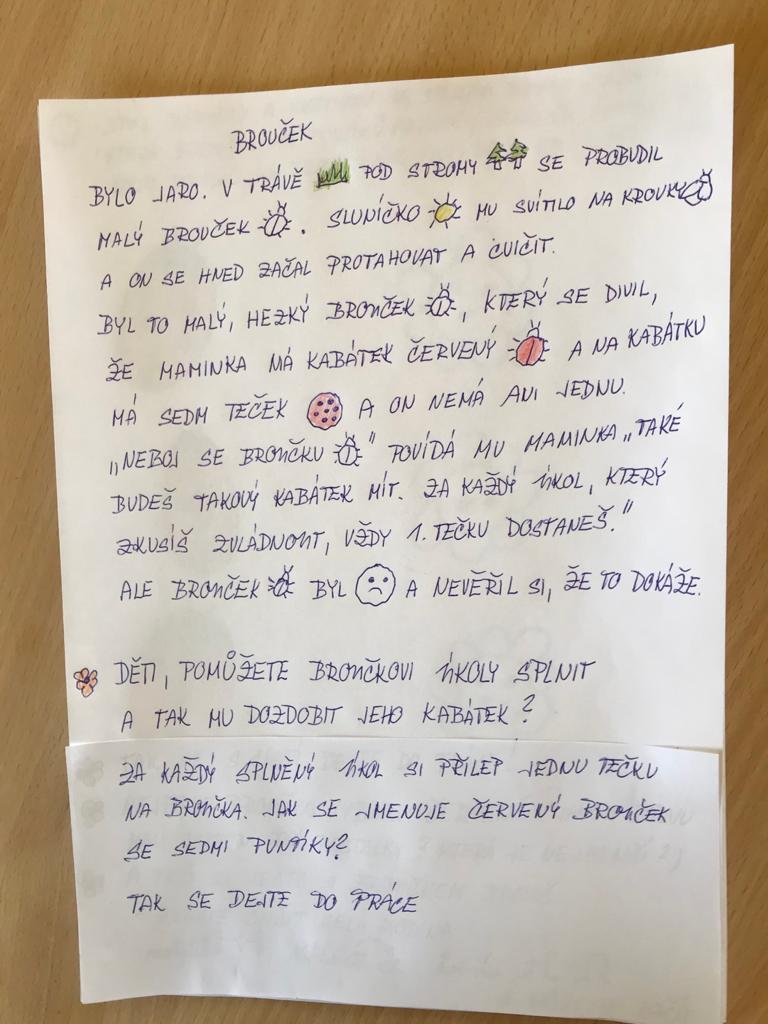 BROUČEK
BYLO JARO. V TRÁVĚ POD STROMY SE PROBUDIL
MALÝ BROUČEK. SLUNÍČKO MU SVÍTILO NA KROVKY
A ON SE HNED ZAČAL PROTAHOVAT A CVIČIT.
BYL TO MALÝ, HEZKÝ BROUČEK, KTERÝ SE DIVIL,
ŽE MAMINKA MÁ KABÁTEK ČERVENÝ A NA KABÁTKU
MÁ SEDM TEČEK A ON NEMÁ ANI JEDNU.
„NEBOJ SE BROUČKU" POVÍDÁ MU MAMINKA „TAKÉ
BUDEŠ TAKOVÝ KABÁTEK MÍT. ZA KAŽDÝ ÚKOL, KTERÝ
ZKUSÍŠ ZVLÁDNOUT, VŽDY 1. TEČKU DOSTANEŠ."
ALE BROUČEK BYL A NEVĚŘIL SI, ŽE TO DOKÁŽE.
DĚTI, POMŮŽETE BROUČKOVI ÚKOLY SPLNIT
A TAK MU DOZDOBIT JEHO KABÁTEK?
ZA KAŽDÝ SPLNĚNÝ ÚKOL SI PŘILEP JEDNU TEČKU
NA BROUČKA. JAK SE JMENUJE ČERVENÝ BROUČEK
SE SEDMI PUNTÍKY?
TAK SE DEJTE DO PRÁCE